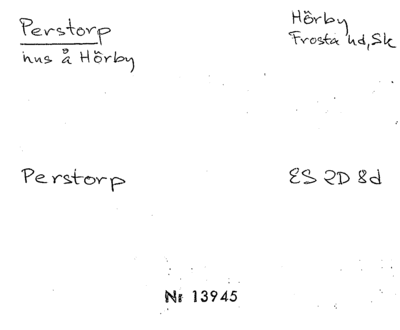 Perstorp
hus å Hörby
Hörby
Frosta hd, Sk
Perstorp
ES 2D 8d
Nr 13945